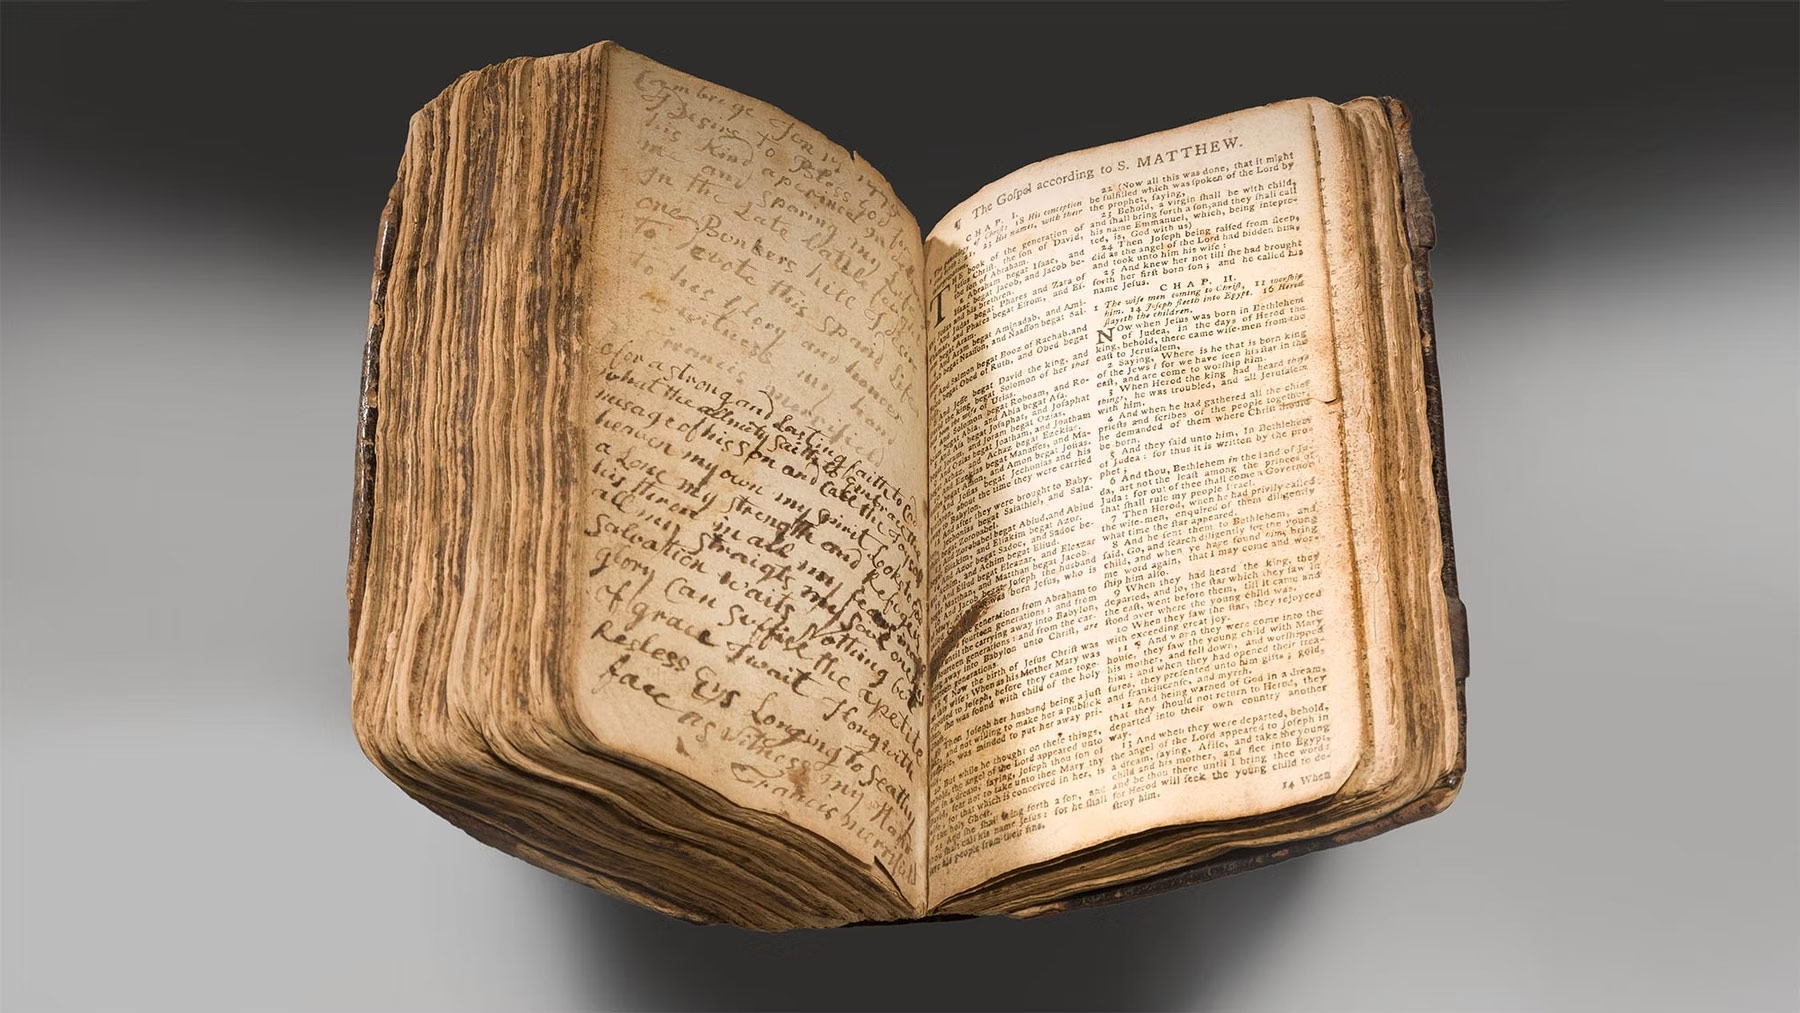 Cambrige Jun 17 1775
I Desire to Bless God for
his Kind aperince in
me and Sparing my Life
In the Late Battle fought
one Bunkers hill I Desire
to Devote this Spared Life
to his glory and honner
as witness my hand
Francis
o for a strong and Lasting faith to
what the almity saith to embrace the
mesage of his Son and Call the Joys of
heaven my own my Spirit Looks to
a Lone my Strength and Refuge is
his thron in all my fears in
all my Straigts my Soul on
Salvation waits Nothing but
glory Can Suffise the apetite
of grace I wait I Long with
Resless Eys Longing to See thy
face as witness my Hand
Francis Merrifield
The Goſpel according to S. MATTHEW.
CHAP. I.
18 His conception
of Chriſt: 23 His names, with their
THE book of the generation of
Jeſus Chriſt, the ſon of David,
the ſon of Abraham.
2 Abraham begat Iſaac, and
Iſaac begat Jacob, and Jacob be-
gat Judas and his brethren.
begat Phares and Zara of
Phares begat Eſrom, and Eſ-
rom begat Aram.
begat Aminadab, and Ami-
begat Naaſſon, and Naaſſon begat Sal-
Salmon begat Booz of Rachab, and
begat Obed of Ruth, and Obed begat
And Jeſſe begat David the king, and
begat Solomon of her that
of Urias.
And Solomon begat Roboam, and Ro-
begat Abia, and Abia begat Aſa.
begat Joſaphat, and Joſaphat
begat Joram, and Joram begat Ozias.
begat Joatham, and Joatham
begat Achaz, and Achaz begat Ezekias.
begat Manaſſes, and Ma-
begat Amon, and Amon begat Joſias.
begat Jechonias and his
about the time they were carried
after they were brought to Baby-
begat Salathiel, and Sala-
begat Zorobabel.
begat Abiud, and Abiud
begat Eliakim, and Eliakim begat Azor.
And Azor begat Sadoc, and Sadoc be-
and Achim begat Eliud.
begat Eleazar, and Eleazar
begat Matthan, and Matthan begat Jacob.
And Jacob begat Joſeph the huſband
born Jeſus, who is
generations from Abraham to
fourteen generations: and from
the carrying away into Babylon,
generations: and from the car-
into Babylon unto Chriſt, are
generations.
Now the birth of Jeſus Chriſt was
When as his Mother Mary was
to Joſeph, before they came toge-
ſhe was found with child of the holy
Then Joſeph her huſband being a juſt
and not willing to make her a publick
was minded to put her away pri-
But while he thought on theſe things,
the angel of the Lord appeared unto
in a dream, ſaying, Joſeph thou ſon of
fear not to take unto thee Mary thy
for that which is conceived in her, is
of the holy Ghoſt.
And ſhe ſhall bring forth a ſon, and
thou ſhalt call his name Jeſus: for he ſhall
ſave his people from their ſins.
22 (Now all this was done, that it might
be fulfilled which was ſpoken of the Lord by
the prophet, ſaying,
23 Behold, a virgin ſhall be with child,
and ſhall bring forth a ſon, and they ſhall call
his name Emmanuel, which, being interpre-
ted, is, God with us)
24 Then Joſeph being raiſed from ſleep,
did as the angel of the Lord had bidden him,
and took unto him his wife:
25 And knew her not till ſhe had brought
forth her firſt born ſon; and he called his
name Jeſus.
CHAP. II.
1 The wiſe men coming to Chriſt, 11 worſhip
him. 14 Joſeph fleeth into Egypt. 16 Herod
ſlayeth the children.
NOw when Jeſus was born in Bethlehem
of Judea, in the days of Herod the
king, behold, there came wiſe-men from the
eaſt to Jeruſalem,
2 Saying, Where is he that is born king
of the Jews? for we have ſeen his ſtar in the
eaſt, and are come to worſhip him.
3 When Herod the king had heard theſe
things, he was troubled, and all Jeruſalem
with him.
4 And when he had gathered all the chief
prieſts and ſcribes of the people together,
he demanded of them where Chriſt ſhould
be born.
5 And they ſaid unto him, In Bethlehem
of Judea: for thus it is written by the pro-
phet;
6 And thou, Bethlehem in the land of Ju-
da, art not the leaſt among the princes of
Juda: for out of thee ſhall come a Governor
that ſhall rule my people Iſrael.
7 Then Herod, when he had privily called
the wiſe-men, enquired of them diligently
what time the ſtar appeared.
8 And he ſent them to Bethlehem, and
ſaid, Go, and ſearch diligently for the young
child, and when ye have found him, bring
me word again, that I may come and wor-
ſhip him alſo.
9 When they had heard the king, they
departed, and lo, the ſtar which they ſaw in
the eaſt, went before them, till it came and
ſtood over where the young child was.
10 When they ſaw the ſtar, they rejoyced
with exceeding great joy.
11 ¶ And when they were come into the
houſe, they ſaw the young child with Mary
his mother, and fell down, and worſhipped
him: and when they had opened their trea-
ſures, they preſented unto him gifts; gold,
and frankincenſe, and myrrh.
12 And being warned of God in a dream,
that they ſhould not return to Herod, they
departed into their own country another
way.
13 And when they were departed, behold,
the angel of the Lord appeared to Joſeph in
a dream, ſaying, Ariſe, and take the young
child and his mother, and flee into Egypt,
and be thou there until I bring thee word:
for Herod will ſeek the young child to de-
ſtroy him.
14 When